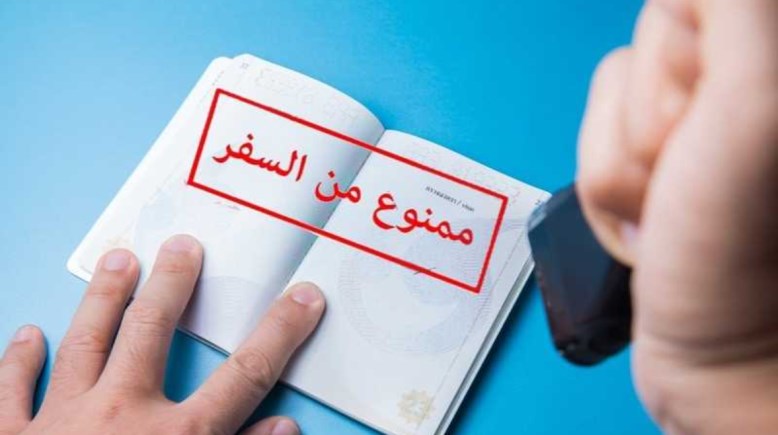 ممنوع من السفر